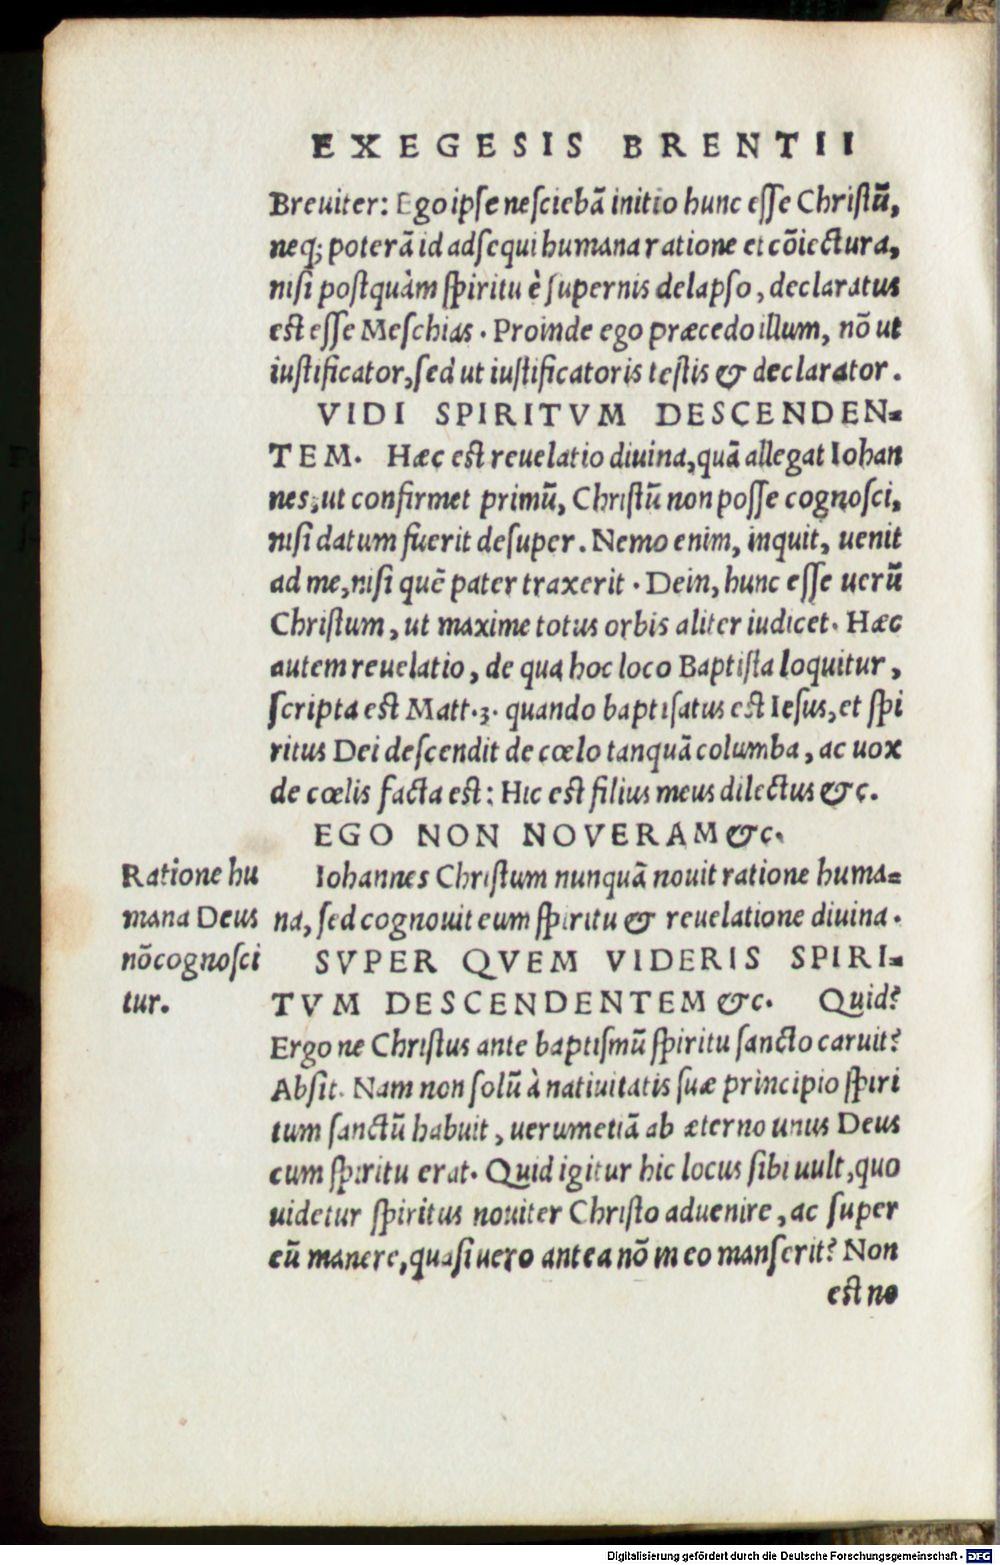 EXEGESIS BRENTII
Breuiter: Ego ipse nesciebā initio hunc esse Christū,
neq; poterā id adsequi humana ratione et cōiectura,
nisi postquàm spiritu è supernis delapso, declaratus
est esse Meschias. Proinde ego præcedo illum, nō ut
iustificator, sed ut iustificatoris testis & declarator.
VIDI SPIRITVM DESCENDEN-
TEM. Hæc est reuelatio diuina, quā allegat Iohan
nes, ut confirmet primū, Christū non posse cognosci,
nisi datum fuerit desuper. Nemo enim, inquit, uenit
ad me, nisi quē pater traxerit. Dein, hunc esse uerū
Christum, ut maxime totus orbis aliter iudicet. Hæc
autem reuelatio, de qua hoc loco Baptista loquitur,
scripta est Matt.3. quando baptisatus est Iesus, et spi
ritus Dei descendit de cœlo tanquā columba, ac uox
de cœlis facta est: Hic est filius meus dilectus &c.
EGO NON NOVERAM &c.
Iohannes Christum nunquā nouit ratione huma-
na, sed cognouit eum spiritu & reuelatione diuina.
Ratione hu
mana Deus
nō cognosci
tur.
SVPER QVEM VIDERIS SPIRI-
TVM DESCENDENTEM &c. Quid?
Ergo ne Christus ante baptismū spiritu sancto caruit?
Absit. Nam non solū à natiuitatis suæ principio spiri
tum sanctū habuit, uerumetiā ab æterno unus Deus
cum spiritu erat. Quid igitur hic locus sibi uult, quo
uidetur spiritus nouiter Christo aduenire, ac super
eū manere, quasi uero antea nō in eo manserit? Non
est ne
Digitalisierung gefördert durch die Deutsche Forschungsgemeinschaft - DFG